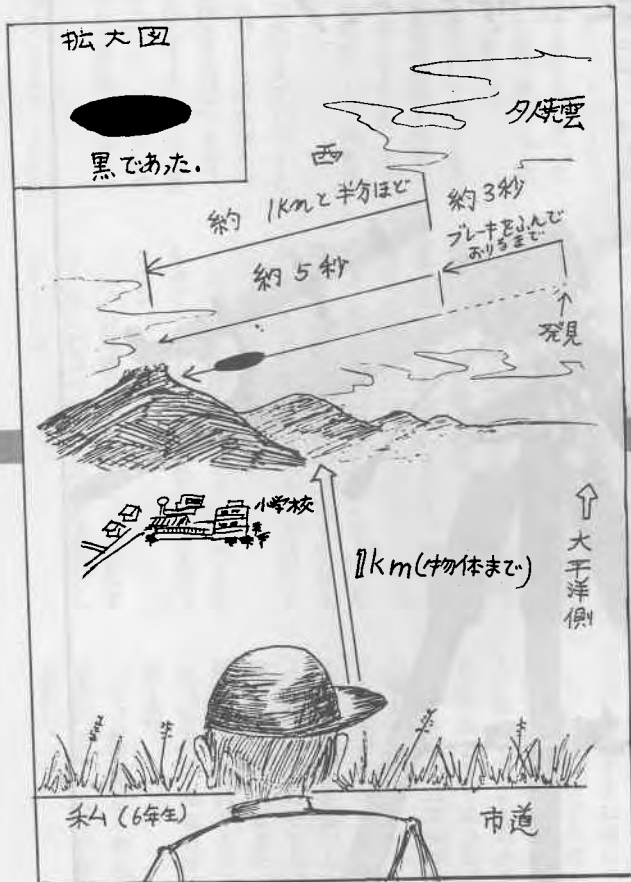 拡大図
黒であった.
夕焼雲
西
約 1kmと半分ほど
約3秒
ブレーキをふんで
おりるまで
約5秒
発見
小学校
1km(物体まで)
大平洋側
私(6年生)
市道